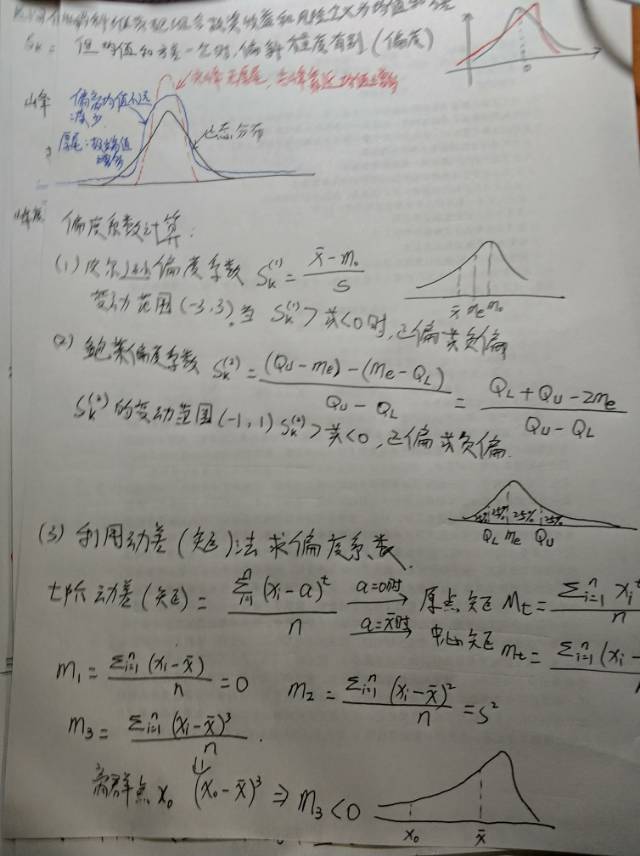 但均值和方差一定时,偏斜程度有别(偏度)
尖峰
偏离均值不远
减少
厚尾:极端值
增多
正态分布
峰度
偏度系数计算:
(1) 皮尔逊偏度系数 Sₖ⁽¹⁾ = (x̄ - m₀)/S
x̄ mₑ m₀
变动范围(-3,3),当 Sₖ⁽¹⁾ > 或<0时,正偏或负偏
(2) 鲍莱偏度系数 Sₖ⁽²⁾ = ((Q_U - mₑ) - (mₑ - Q_L))/(Q_U - Q_L) = (Q_L + Q_U - 2mₑ)/(Q_U - Q_L)
Sₖ⁽²⁾ 的变动范围(-1,1) Sₖ⁽²⁾ > 或<0,正偏或负偏.
25% 25% 25% 25%
Q_L mₑ Q_U
(3) 利用动差(矩)法求偏度系数.
t阶动差(矩) = Σⁿᵢ₌₁(xᵢ - a)ᵗ/n a=0时 → 原点矩 Mₜ = Σⁿᵢ₌₁ xᵢᵗ/n
a=x̄时 → 中心矩 mₜ = Σⁿᵢ₌₁(xᵢ -
m₁ = Σⁿᵢ₌₁(xᵢ - x̄)/n = 0 m₂ = Σⁿᵢ₌₁(xᵢ - x̄)²/n = S²
m₃ = Σⁿᵢ₌₁(xᵢ - x̄)³/n.
离群点 x₀ (x₀ - x̄)³ ⇒ m₃ < 0
x₀ x̄